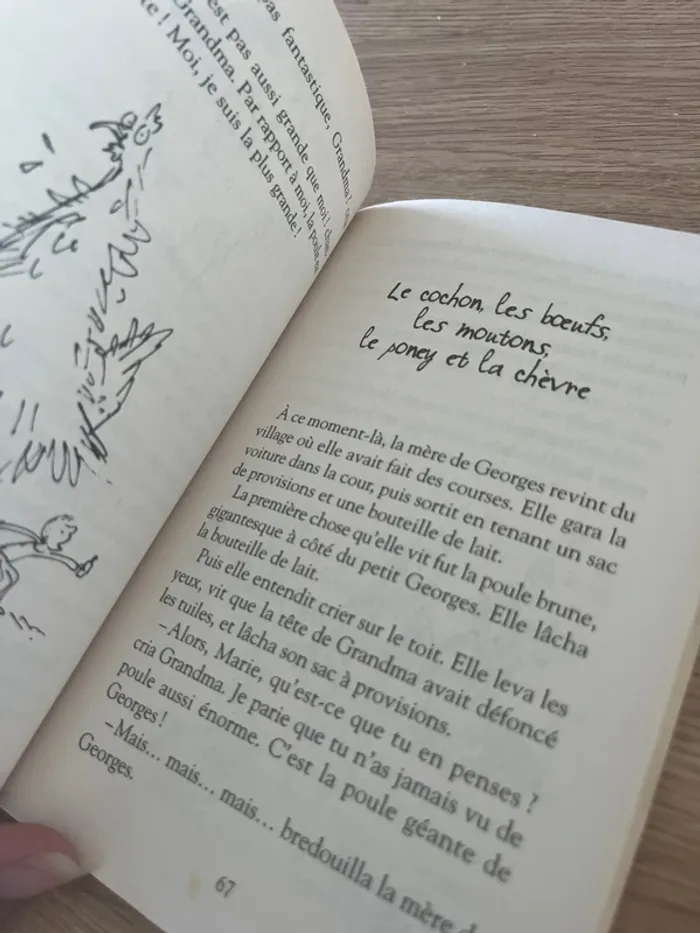 as fantastique, Grandma ?
est pas aussi grande que moi ! 
Grandma. Par rapport à moi, la
te ! Moi, je suis la plus grande !
Le cochon, les bœufs,
les moutons,
le poney et la chèvre
À ce moment-là, la mère de Georges revint du
village où elle avait fait des courses. Elle gara la
voiture dans la cour, puis sortit en tenant un sac
de provisions et une bouteille de lait.
La première chose qu'elle vit fut la poule brune,
gigantesque à côté du petit Georges. Elle lâcha
la bouteille de lait.
Puis elle entendit crier sur le toit. Elle leva les
yeux, vit que la tête de Grandma avait défoncé
les tuiles, et lâcha son sac à provisions.
–Alors, Marie, qu'est-ce que tu en penses ?
cria Grandma. Je parie que tu n'as jamais vu de
poule aussi énorme. C'est la poule géante de
Georges !
–Mais... mais... mais... bredouilla la mère d
Georges.
67